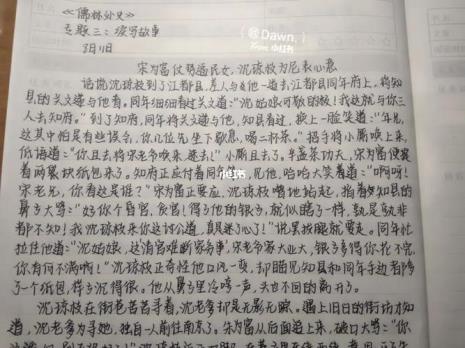 《儒林外史》
专题三：续写故事
3月1日
@Dawn.
宋为富仗势逼民女，沈琼枝为尼表心意
话说沈琼枝到了江都县，差人与他一道去江都县同年府上，将知
县的关文递与他看。同年细细看过关文道："沈姑娘可敬的极！我这就与你三
人去知府。"到了知府，同年将关文递与他，知县看过，换上一脸笑道："年兄，
这其中怕是有些误会，你几位先坐下歇息，喝二杯茶。"招手将小厮唤上来，
低语道："你且去将宋老爷唤来，速去！"小厮且去了。半盏茶功夫，宋为富便提
着两裹状纸包来了。知府正应付着同年，见他，哈哈大笑着道："啊呀！
宋老兄，你看这是谁？"宋为富正要应，沈琼枝噌地站起，指着知县的
鼻子大骂："好你个昏官，贪官！得了他的银子，就似瞎了一样，孰是孰非
都不知！我沈琼枝来你这讨公道，真是迷了心了！"说罢抬腿就要走。同年忙
拉住他道："沈姑娘，这清官难断家务事，宋老爷家大业大，银子多得你花不完，
你有何不满啊！"沈琼枝正奇怪他口风一变，却瞄见知县和同年手边各
了一个纸包，样子沉得很。他从鼻子里冷哼一声，头也不回的离开了。
沈琼枝在街巷苦苦寻着，沈老爹却是无影无踪。遇上旧日的街坊才知
道，沈老爹为寻她，独自一人前往南京了。宋为富从后面追上来，破口大骂："你